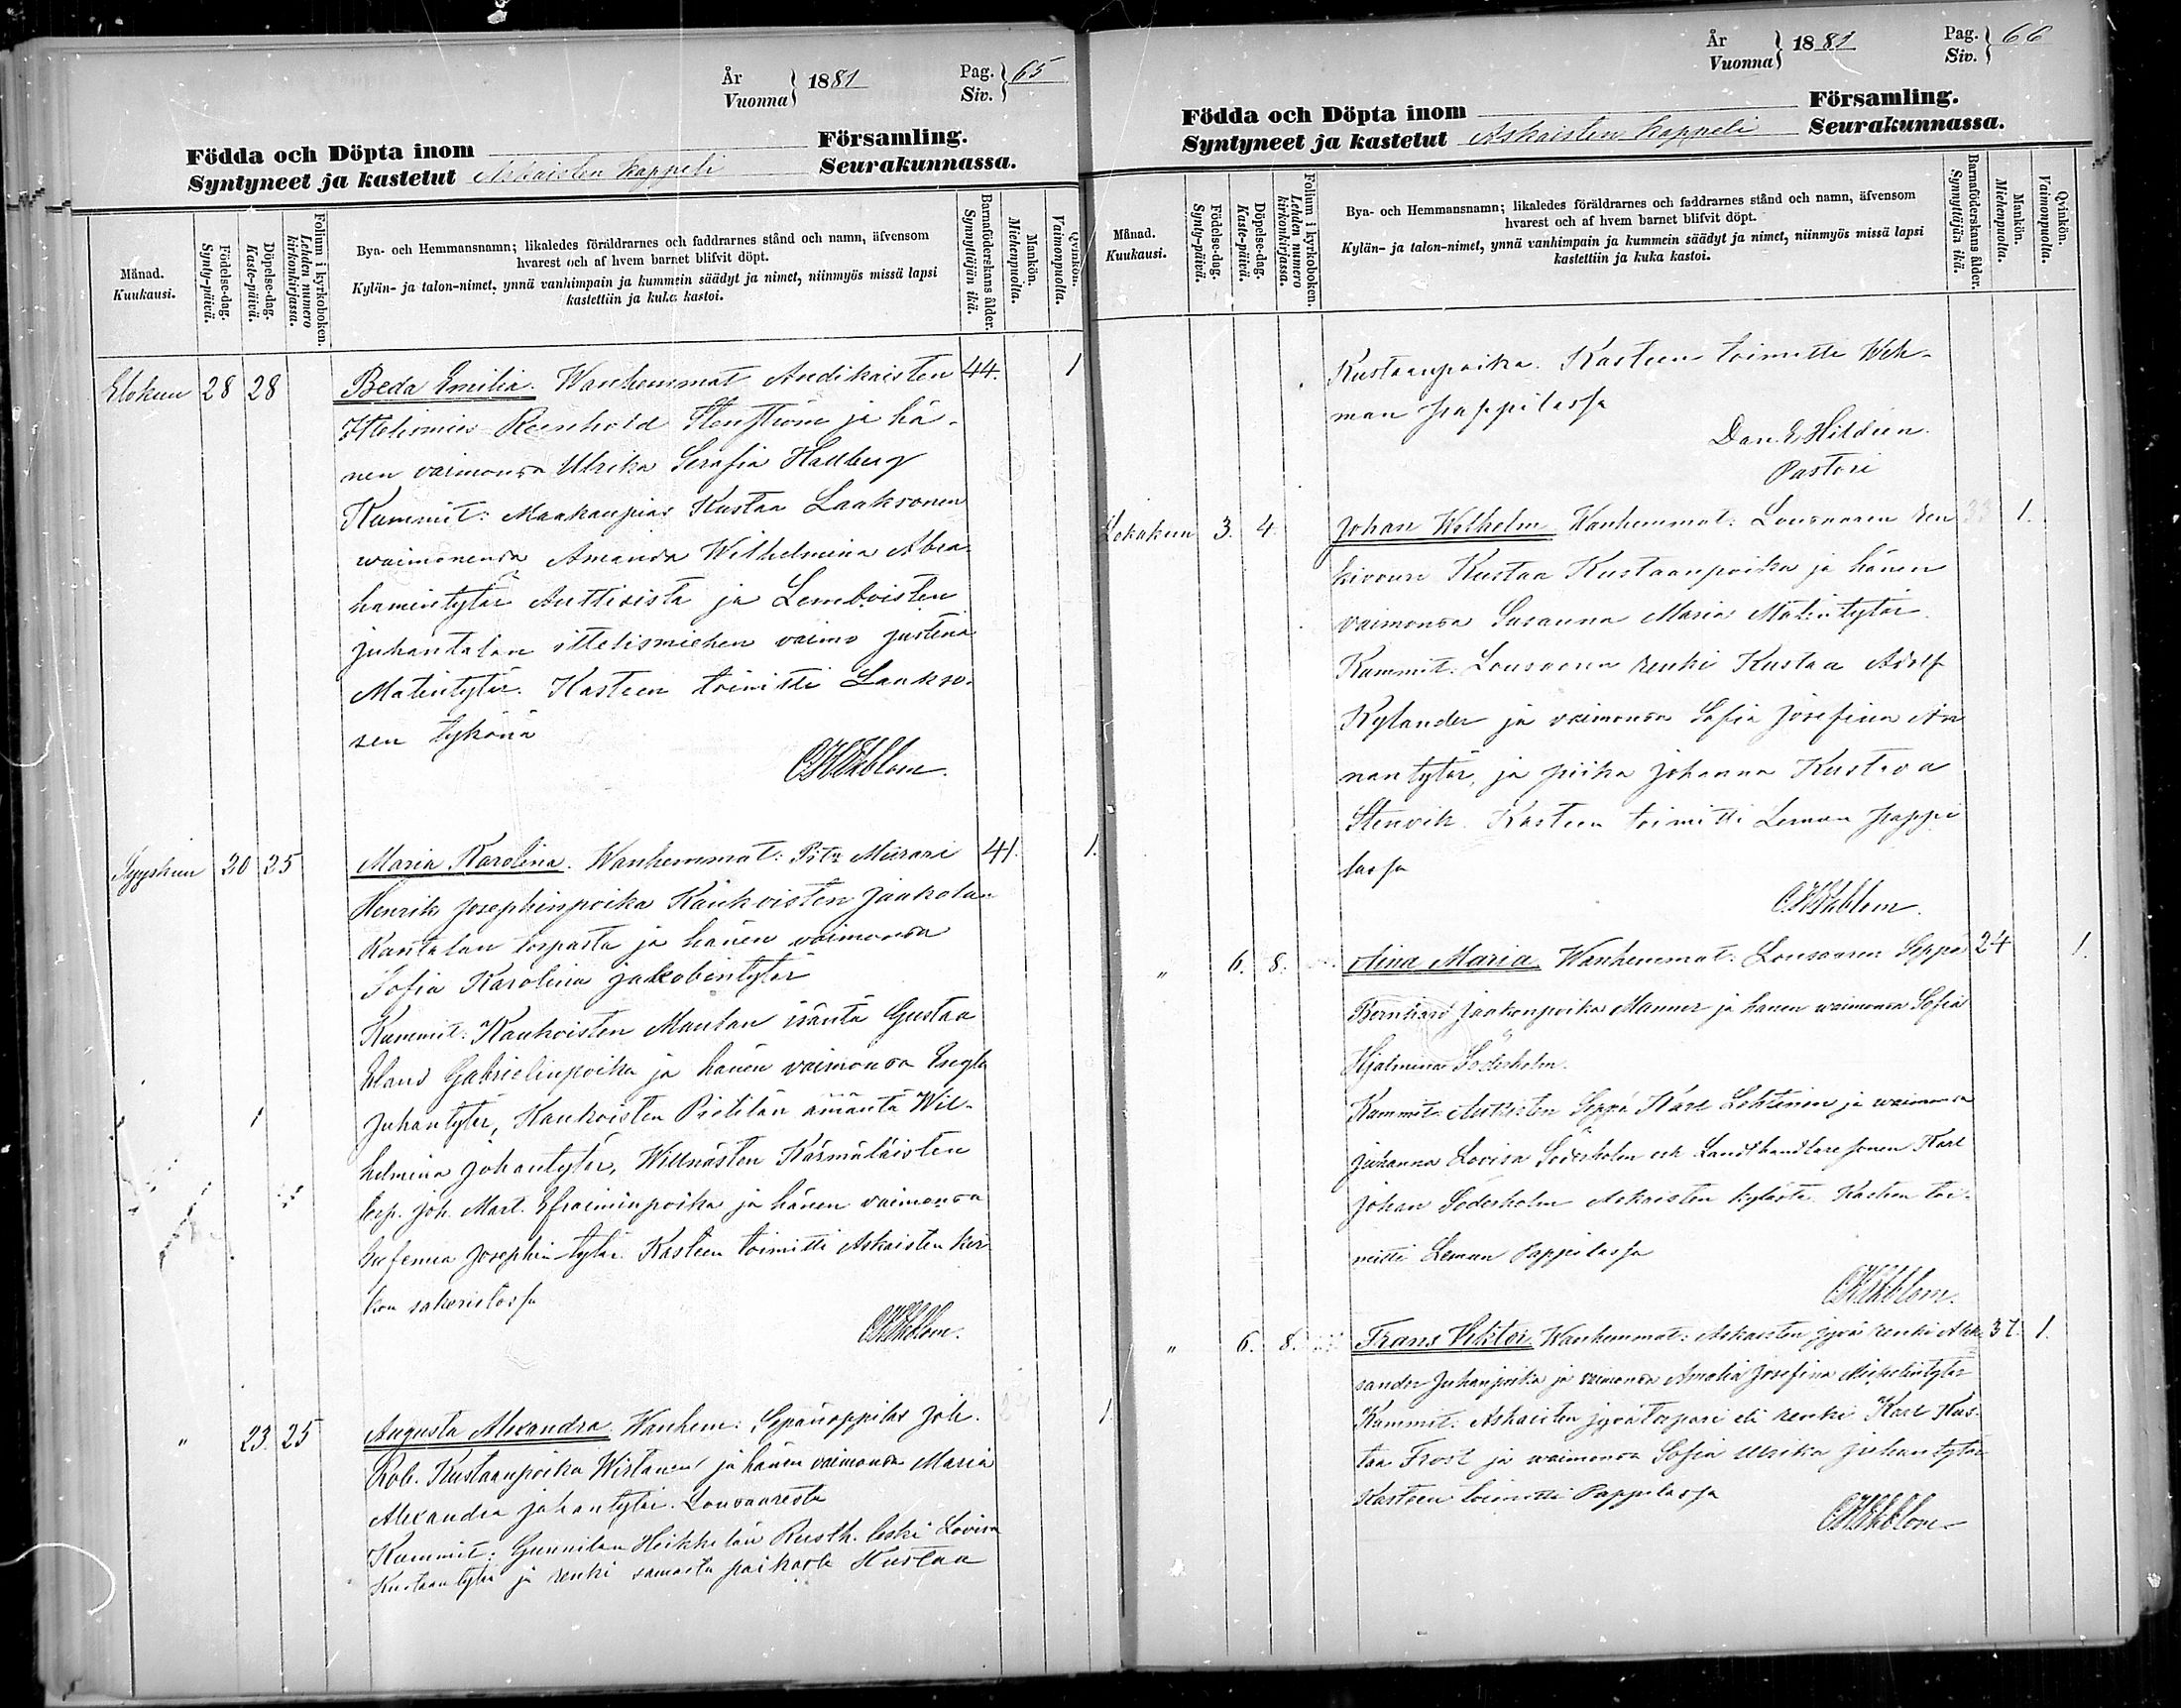 År
Vuonna } 1881
Pag.
Siv. } 65
Födda och Döpta inom Församling.
Syntyneet ja kastetut Askaisten kappeli Seurakunnassa.
Månad.
Kuukausi.
Födelse-dag.
Synty-päivä.
Döpelse-dag.
Kaste-päivä.
Folium i kyrkoboken.
Lehden numero
kirkonkirjassa.
Bya- och Hemmansnamn; likaledes föräldrarnes och faddrarnes stånd och namn, äfvensom
hvarest och af hvem barnet blifvit döpt.
Kylän- ja talon-nimet, ynnä vanhimpain ja kummein säädyt ja nimet, niinmyös missä lapsi
kastettiin ja kuka kastoi.
Barnaföderskans ålder.
Synnyttäjän ikä.
Mankön.
Miehenpuolia.
Qvinkön.
Vaimonpuolia.
Elokuu 28 28 Beda Emilia. Wanhemmat Audikaisten 44. 1
Ittelismies Reinhold Stenström ja hä-
nen vaimonsa Ulrika Serafia Hallberg
Kummit: Maakaupias Kustaa Laaksonen
waimonensa Amanda Wilhelmina Abra-
hamintytär Auttisista ja Lemboisten
Juhantalon ittelismiehen vaimo Justina
Matintytär. Kasteen toimitti Laakso-
sen tykönä
C H Ekblom.
Syyskuu 20 25 Maria Karolina. Wanhemmat: Pit: Muurari 41. 1.
Henrik Josephinpoika Kankoisten Jaakolan
Rantalan torpasta ja hänen vaimonsa
Sofia Karolina Jakobintytär
Kummit: Kankoisten Maulan isäntä Gustaa
Erland Gabrielinpoika ja hänen vaimonsa
Juhantytär, Kankoisten Pietilän ämäntä Wil-
helmina Johantytär, Willnästen Kärmäläisten
torp. Joh. Mart. Efraiminpoika ja hänen vaimonsa
Eufemia Josephintytär. Kasteen toimitti Askaisten kir-
kon sakeristossa
C H Ekblom.
" 23. 25 Augusta Alexandra. Wanhem: Sepänoppilas Joh. 1
Rob. Kustaanpoika Wistanen ja hänen vaimonsa Maria
Alexandra Johantytär. Lousaaresta
Kummit: Gunnilan Heikkelän Rusth. leski Lovisa
Kustaantytär ja renki samasta paikasta Kustaa
År
Vuonna } 1881
Pag.
Siv. } 66
Födda och Döpta inom Församling.
Syntyneet ja kastetut Askaisten kappeli Seurakunnassa.
Månad.
Kuukausi.
Födelse-dag.
Synty-päivä.
Döpelse-dag.
Kaste-päivä.
Folium i kyrkoboken.
Lehden numero
kirkonkirjassa.
Bya- och Hemmansnamn; likaledes föräldrarnes och faddrarnes stånd och namn, äfvensom
hvarest och af hvem barnet blifvit döpt.
Kylän- ja talon-nimet, ynnä vanhimpain ja kummein säädyt ja nimet, niinmyös missä lapsi
kastettiin ja kuka kastoi.
Barnaföderskans ålder.
Synnyttäjän ikä.
Mankön.
Miehenpuolta.
Qvinkön.
Vaimonpuolta.
Kustaanpoika. Kasteen toimitti Weh-
man pappilassa
Dan. E Hildeen.
Pastori
Lokakuu 3. 4. Johan Wilhelm Wanhemmat: Lousaaren ren 1.
kivouri Kustaa Kustaanpoika ja hänen
vaimonsa Susanna Maria Matintytär.
Kummit. Lousaaren renki Kustaa Adolf
Kylander ja vaimonsa Sofia Josefina An
nantytär, ja piika Johanna Kustava
Stenvik. Kasteen toimitti Leman pappi
lassa
C H Ekblom.
" 6. 8. Aina Maria. Wanhemmat: Lousaaren Seppä 24 1.
Bernhard Jaakonpoika Manner ja hänen waimonsa Sofia
Hjalmina Söderholm.
Kummit. Auttisten Seppä Karl Lehtinen ja waimonsa
Juhanna Lovisa Söderholm och Landthandlare sonen Karl
Johan Söderholm Askaisten kylästä. Kasteen toi-
mitti Leman Pappilassa
C H Ekblom.
" 6. 8. Frans Viktor Wanhemmat: Askaisten jyvä renki Alek- 37. 1.
sander Juhanpoika ja vaimonsa Amalia Josefina Mickelintytär
Kummit: Askaisten jyvä torpari eli renki Karl Kus-
taa Frost ja waimonsa Sofia Ulrika Juhantytär
Kasteen toimitti Pappilassa
C H Ekblom